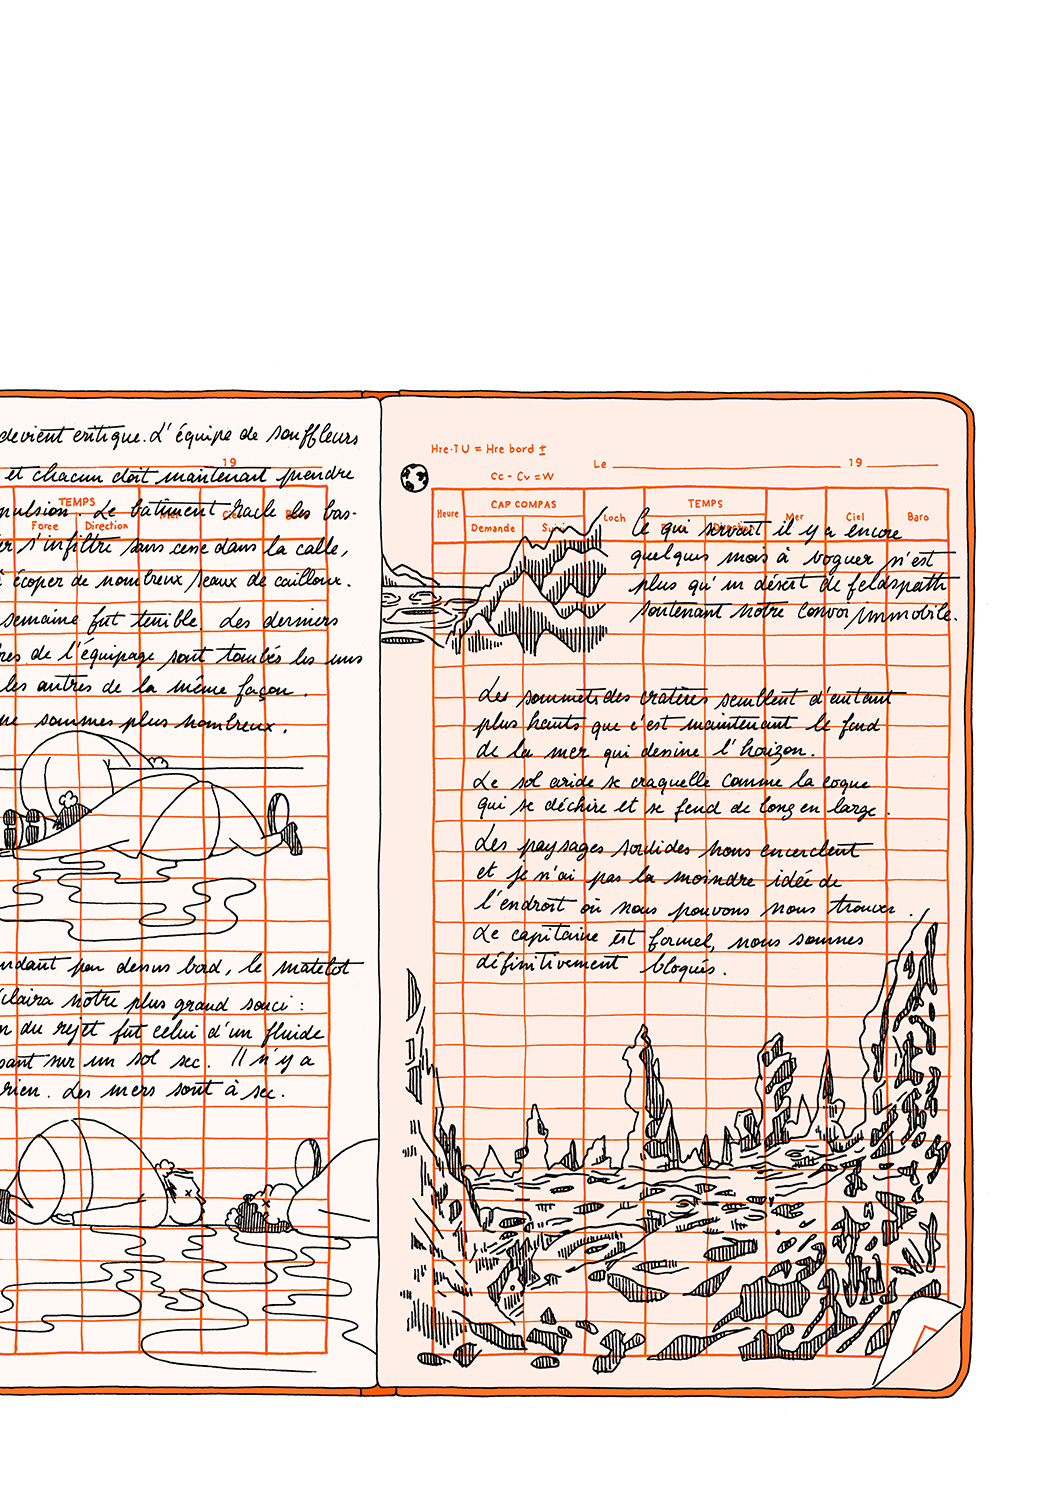 devient critique. L'équipe de souffleurs
19
et chacun doit maintenant prendre
TEMPS
pulsion. Le batiment racle les bas-
Force Direction Mer Ciel Baro
er s'infiltre sans cesse dans la calle,
à écoper de nombreux seaux de cailloux.
semaine fut terrible. Les derniers
res de l'équipage sont tombés les uns
les autres de la même façon.
ne sommes plus nombreux.
ndant par dessus bord, le matelot
claira notre plus grand souci :
n du rejet fut celui d'un fluide
sant sur un sol sec. Il n'y a
rien. Les mers sont à sec.
Hre·TU = Hre bord ±
Le 19
Cc - Cv = W
Heure CAP COMPAS Loch TEMPS Mer Ciel Baro
Demande Suivi Direction
Ce qui servait il y a encore
quelques mois à voguer n'est
plus qu'un désert de feldspath
soutenant notre convoi immobile.
Les sommets des cratères semblent d'autant
plus hauts que c'est maintenant le fond
de la mer qui dessine l'horizon.
Le sol aride se craquelle comme la coque
qui se déchire et se fend de long en large.
Les paysages sordides nous encerclent
et je n'ai pas la moindre idée de
l'endroit où nous pouvons nous trouver.
Le capitaine est formel, nous sommes
définitivement bloqués.